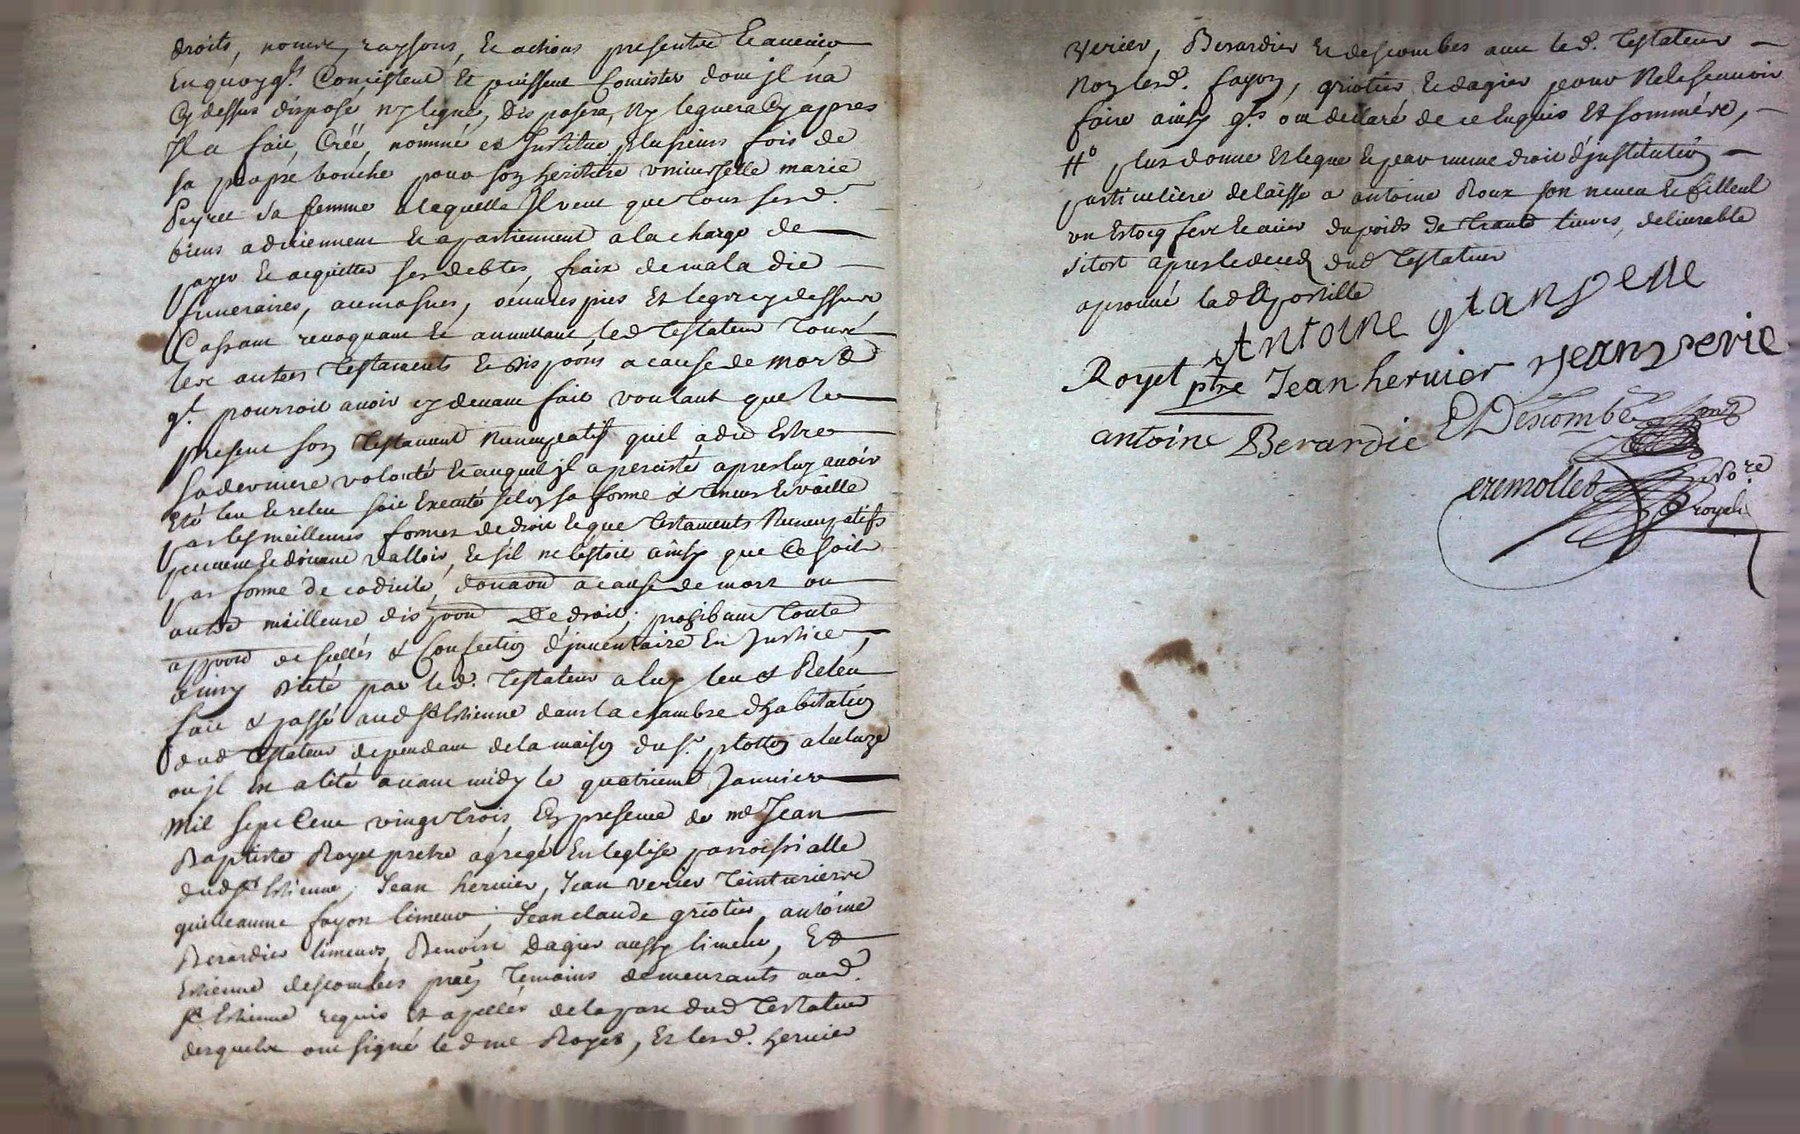 droits, noms, raysons, et actions presents et avenir
En quoy qls Concistent Et puissent Concister dont jl n'a
Cy dessus disposé, ny legué, Disposera, Ny leguera Cy appres
Jl a fait, Créé, nommé et Justitue plusieurs fois de
sa propre bouche pour son heritiere universelle marie
Peyret sa femme a laquelle Jl veut que tous sesd.
biens adviennent et apartiennent a la charge de
payer et acquitter ses debtes, fraix de maladie
funeraires, aumosnes, oeuvres pies Et legs cy dessus
Cassant revoquant et annullant led Testateur Tous
les autres Testaments et dispoons a cause de mort
ql pourroit avoir cy devant fait voulant que le
present son Testament Nuncupatif quil a dit Estre
sa derniere volonté et auquel jl a percisté apres luy avoir
Eté leu et releu soit Executé selon sa forme & teneur et vaille
par les meilleures formes de droit et que Testaments Nuncupatifs
peuvent et doivent valloir, et s'il ne lestoit ainsy que Ce soit
par forme de codicile, donaon a cause de mort ou
autre meilleure dispoon de droit, prohibant toute
appoon de scellés & Confection d'jnventaire En Justice,
ainsy dicté par led. Testateur a luy leu & Releu
fait & passé aud St Estienne dans la chambre d'habitation
dud Testateur dependant de la maison du sr. plotton
ou jl Est alité avant midy le quatrieme Janvier
Mil sept Cent vingt trois, En presence de me Jean
Baptiste Royet pretre agregé En leglise parroissialle
dud St Estienne, Jean hervier, Jean verier Teinturiers
guilleaume fayon limeur, Jean claude griotier, antoine
Berardier limeur, Benoist dagier aussy limeur, Et
Estienne descombes Témoins demeurants aud.
St Estienne requis Et apellés de la part dud Testateur
desquels ont signé led me Royet, Et lesd. hervier
verier, Berardier et descombes avec led. Testateur
Non lesd. fayon, griotier et dagier pour Ne le scavoir
faire ainsy qls ont declaré de ce Enquis Et sommés,
# plus donne Et legue et par mme droit d'justitution
particuliere delaisse a antoine Roux son neveu et filleul
un Estocq fert et acier du poids de trante livres, delivrable
sitost apres le deced dud Testateur
aprouvé lad apostille
Antoine granjerre
Royet ptre Jean hervier Jean verie
antoine Berardie E Descombe
eremollet
royal